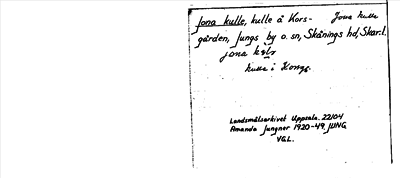 Jona kulle, kulle å Kors- Jona kulle
gården, Jungs by o. sn, Skånings hd, Skar.l.
jona
kulle i Kongs.
Landsmålsarkivet Uppsala. 22104
Amanda Jungner 1920-49. JUNG
VGL.